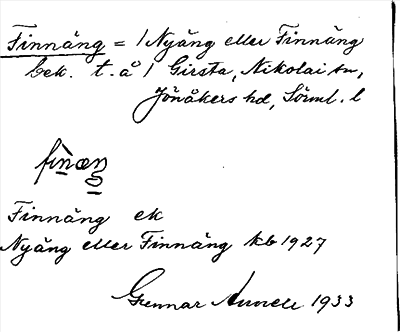 Finnäng = / Nyäng eller Finnäng
bek. t. å / Girsta, Nikolai sn,
Jönåkers hd, Sörml. l
finæŋ
Finnäng ek
Nyäng eller Finnäng kb 1927
Gunnar 1933